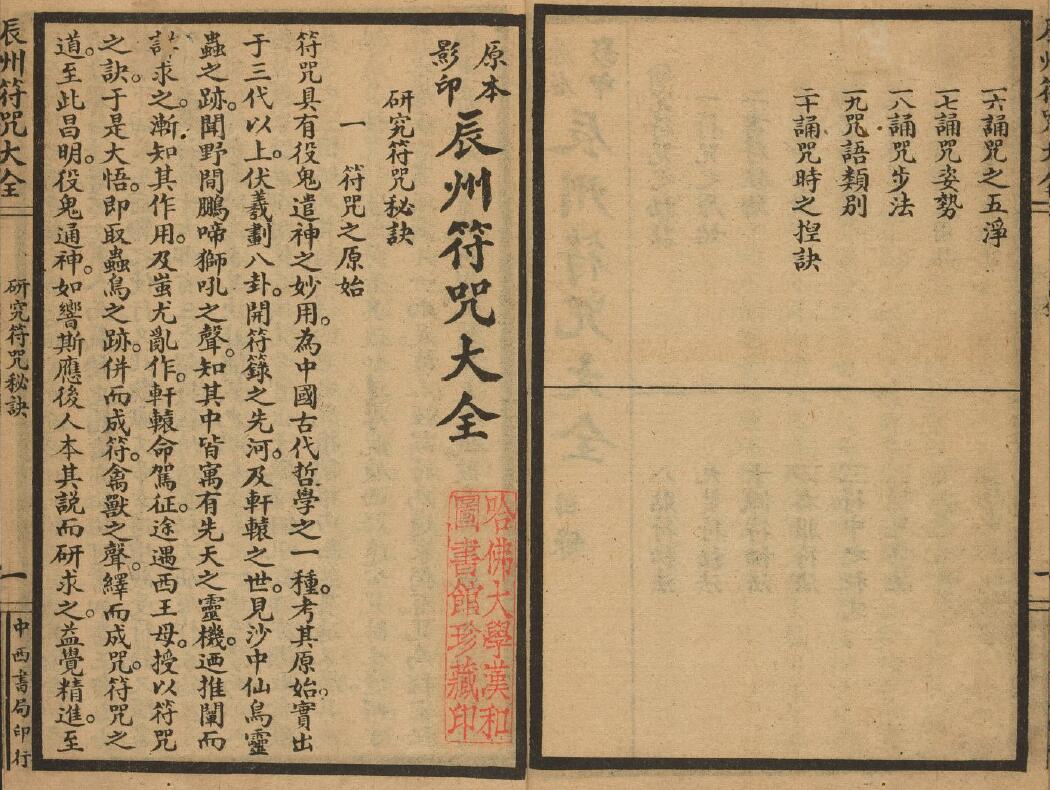 辰州符咒大全
一六誦咒之五淨
一七誦咒姿勢
一八誦咒步法
一九咒語類別
二十誦咒時之揑訣
原本
影印
辰州符咒大全
研究符咒秘訣
一 符咒之原始
符咒具有役鬼遣神之妙用。為中國古代哲學之一種。考其原始。實出
于三代以上。伏羲劃八卦。開符籙之先河。及軒轅之世。見沙中仙鳥靈
蟲之跡。聞野間鵬啼獅吼之聲。知其中皆寓有先天之靈機。迺推闡而
討求之。漸知其作用。及蚩尤亂作。軒轅命駕征。途遇西王母。授以符咒
之訣。于是大悟。即取蟲鳥之跡。併而成符。禽獸之聲。繹而成咒。符咒之
道至此昌明。役鬼通神。如響斯應。後人本其説而研求之。益覺精進。至
哈佛大學漢和
圖書館珍藏印
辰州符咒大全
研究符咒秘訣
一
中西書局印行